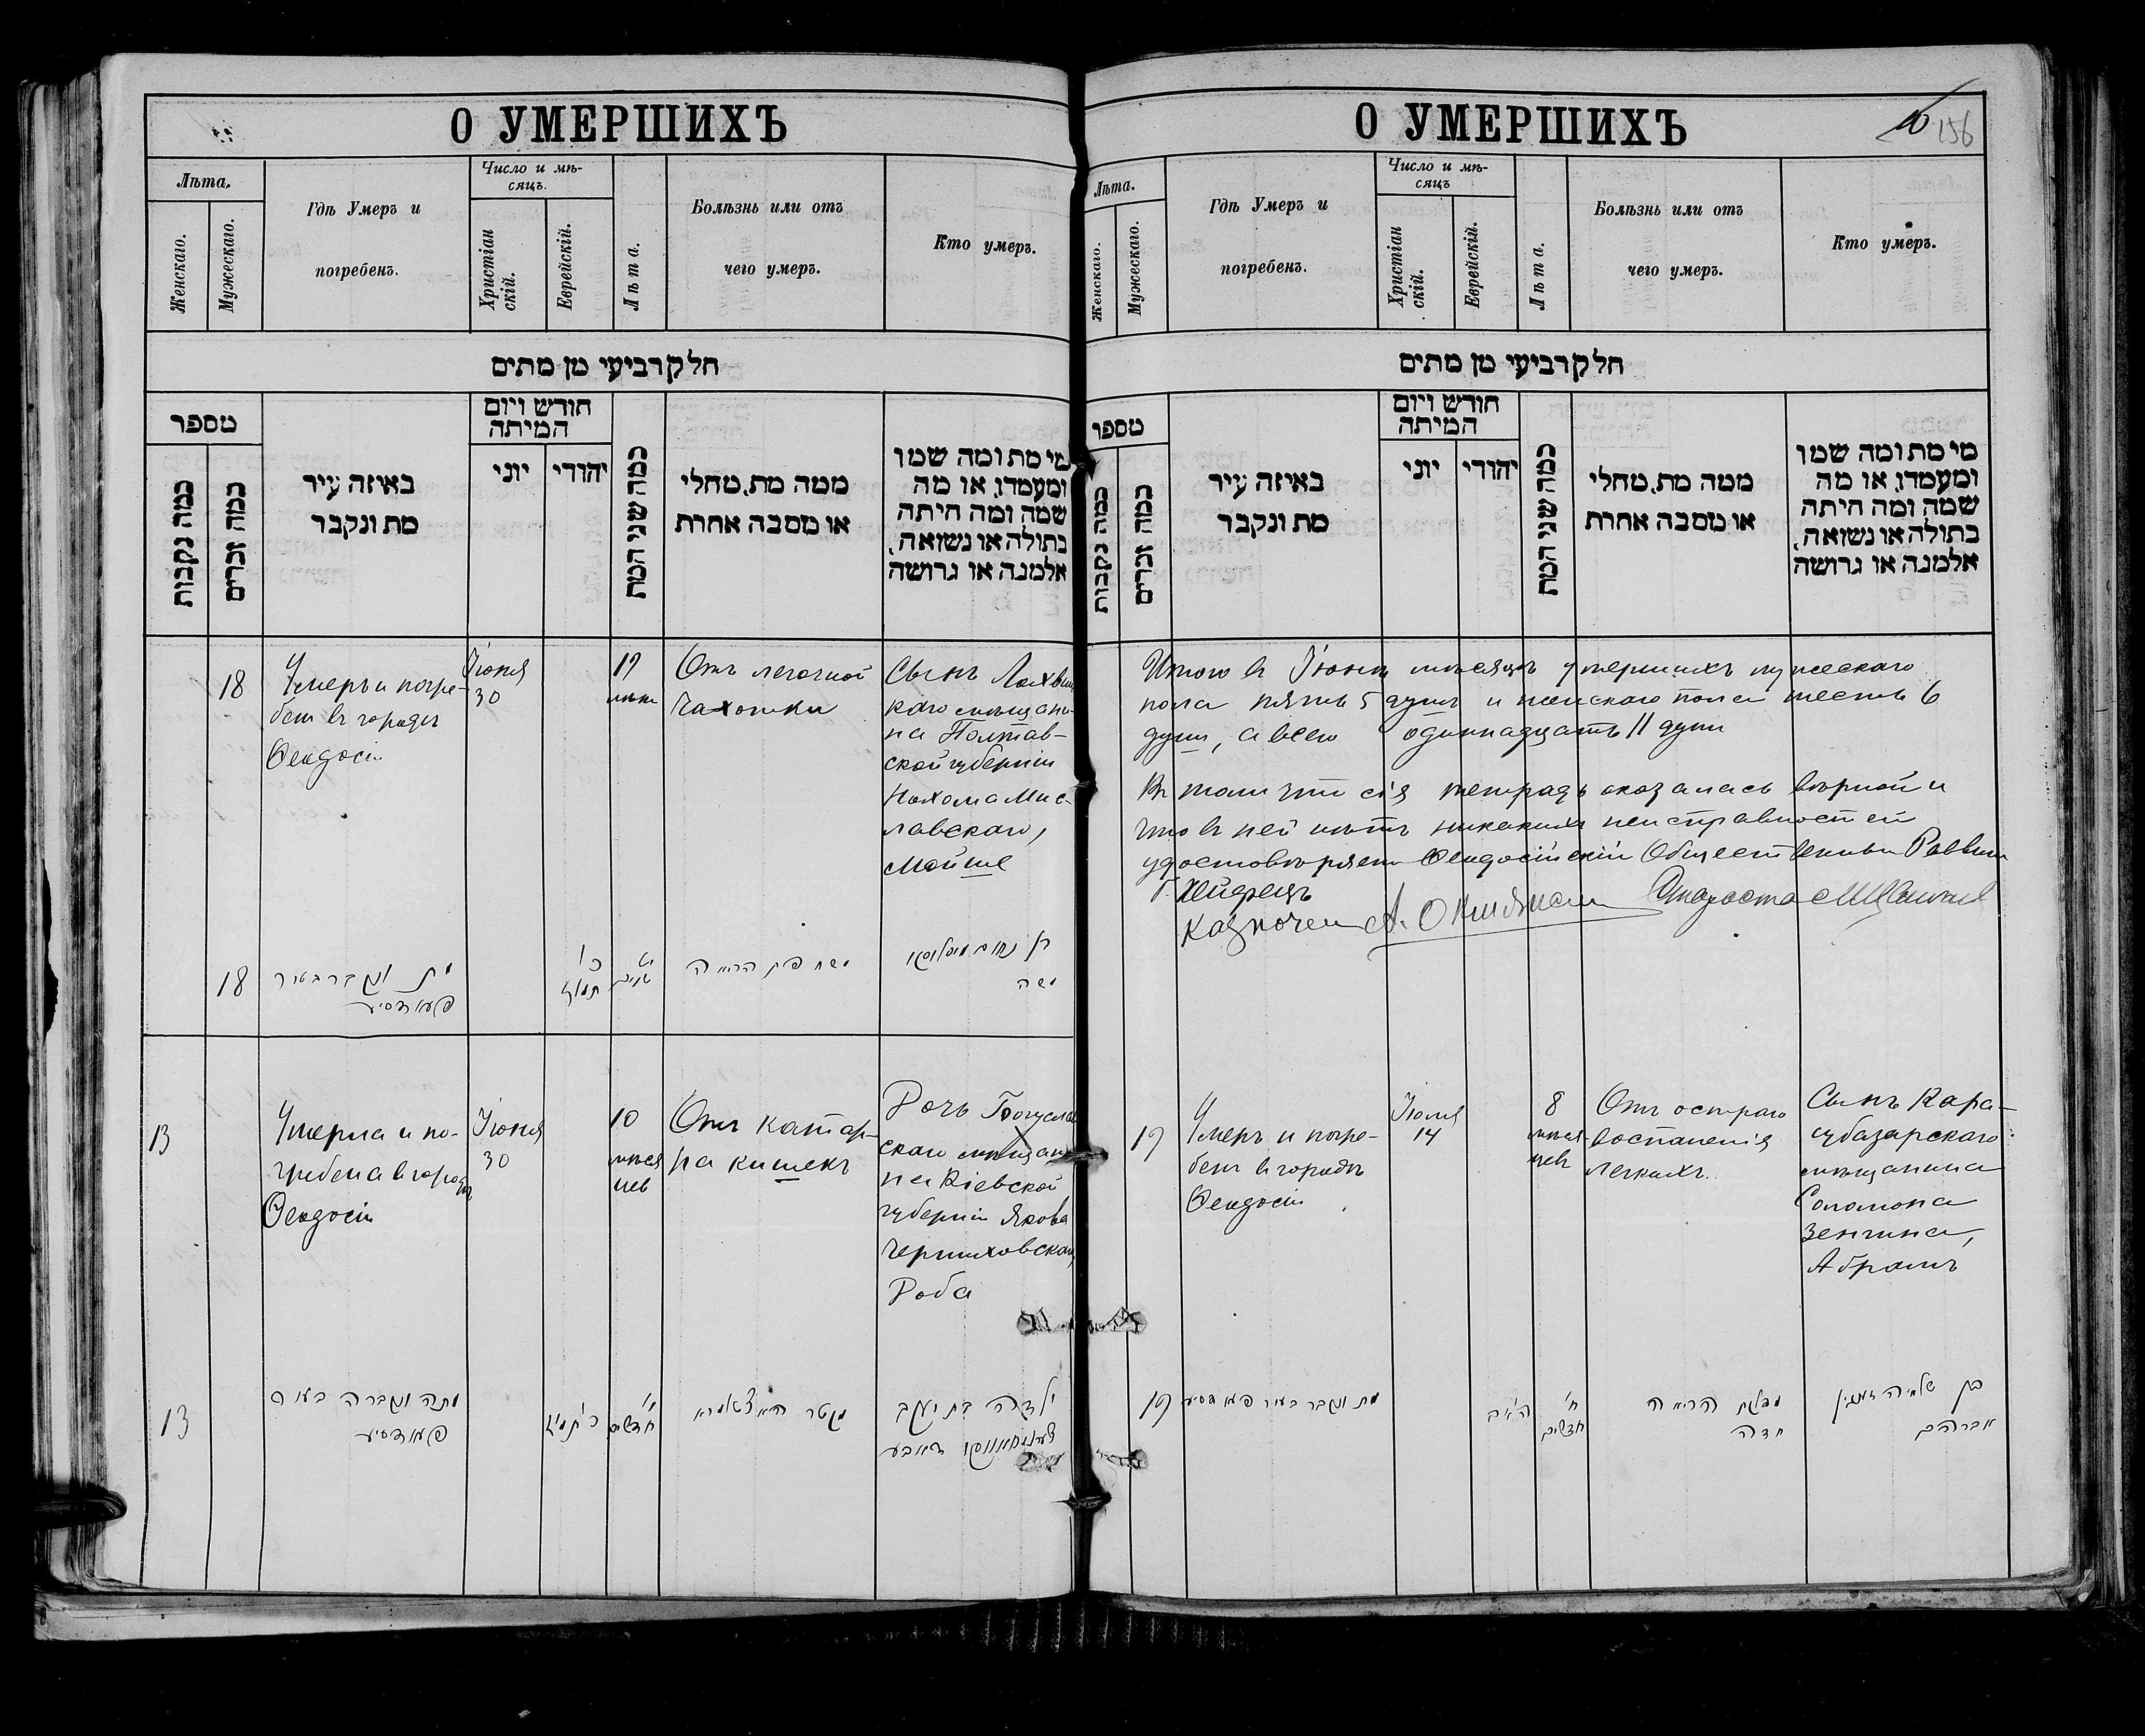 О УМЕРШИХЪ
Лѣта.
Женскаго.
Мужескаго.
Гдѣ Умеръ и
погребенъ.
Число и мѣ-
сяцъ.
Христіан
скій.
Еврейскій.
Лѣта.
Болѣзнь или отъ
чего умеръ.
Кто умеръ.
חלק רביעי מן מתים
מספר
כמה נקבות
כמה זכרים
באיזה עיר
מת ונקבר
חודש ויום
המיתה
יוני
יהודי
כמה שני המת
ממה מת, מחלי
או מסבה אחרת
מי מת ומה שמו
ומעמדו, או מה
שמה ומה היתה
בתולה או נשואה,
אלמנה או גרושה
18
Умеръ и погре-
бенъ въ городѣ
Ѳеодосіи
Іюня
30
19
Отъ легочной
чахотки
Сынъ
каго мѣщани-
на Полтав-
ской губерніи
Нохома Мис-
лавскаго,
Мойше
18
מת ונקבר בעיר
פעאדסיע
תמוז
בן נחום
משה
13
Умерла и по-
гребена въ городѣ
Ѳеодосіи
Іюня
30
10
мѣся
цев
Отъ катар-
ра кишекъ
Дочь Богуслав
скаго мѣщани
на Кіевской
губерніи Якова
Черниховскаго,
Доба
13
מתה ונקברה בעיר
פעאדסיע
י'
חדשים
ילדה בת יעקב
דאבע
О УМЕРШИХЪ
156
Лѣта.
Женскаго.
Мужескаго.
Гдѣ Умеръ и
погребенъ.
Число и мѣ-
сяцъ
Христіан
скій.
Еврейскій.
Лѣта.
Болѣзнь или отъ
чего умеръ.
Кто умеръ.
חלק רביעי מן מתים
מספר
כמה נקבות
כמה זכרים
באיזה עיר
מת ונקבר
חודש ויום
המיתה
יוני
יהודי
כמה שני המת
ממה מת, מחלי
או מסבה אחרת
מי מת ומה שמו
ומעמדו, או מה
שמה ומה היתה
בתולה או נשואה,
אלמנה או גרושה
Итого въ Іюнѣ мѣсяцѣ умершихъ мужескаго
пола пять 5 душъ и женскаго пола шесть 6
душъ, а всего одиннадцать 11 душъ
Въ томъ что сія тетрадь оказалась вѣрной и
что въ ней нѣтъ никакихъ неисправностей
удостовѣряемъ Ѳеодосійскій Общественный Раввинъ
Казначей А. Староста
19
Умеръ и погре-
бенъ въ городѣ
Ѳеодосіи
Іюля
14
8
мѣся-
цевъ
Отъ остраго
воспаленія
легкихъ.
Сынъ Кара-
субазарскаго
мѣщанина
Соломона
Зенгина,
Абрамъ
19
מת ונקבר בעיר פעאדסיע
ה' אב
ח'
חדשים
מדלקת הריאה
חדה
בן שלמה זענגין
אברהם